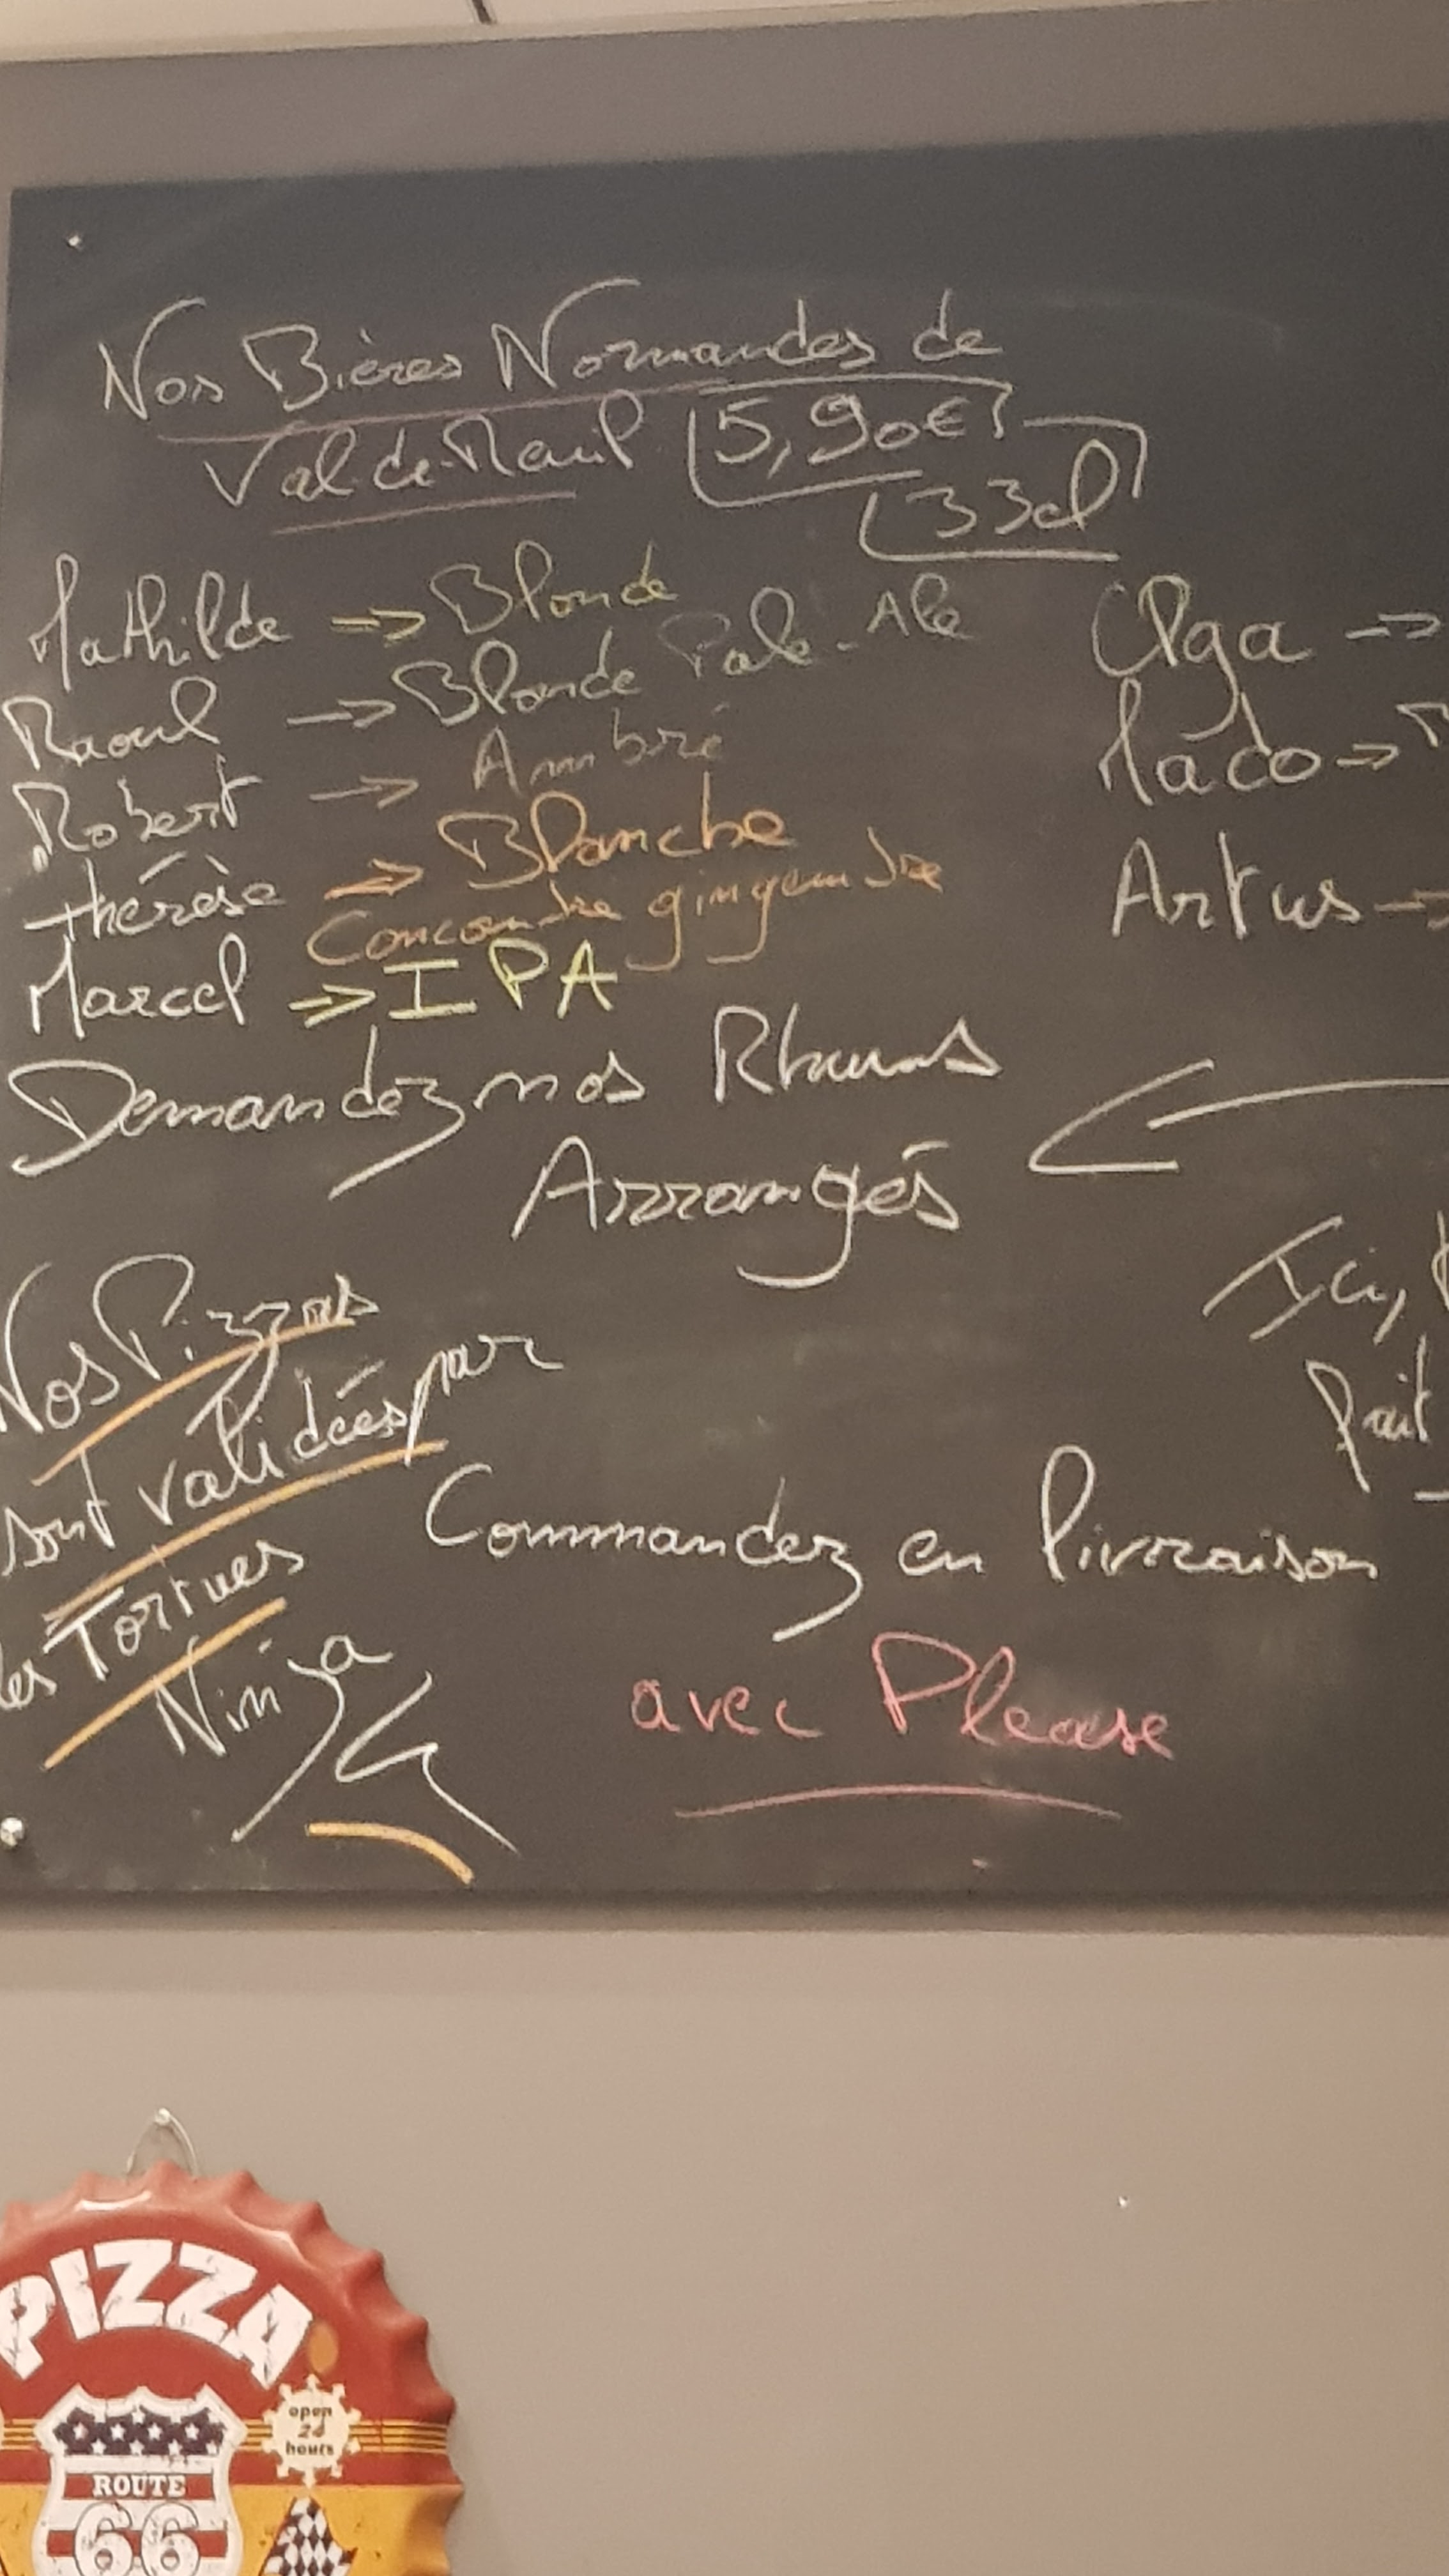 Nos Bières Normandes de
Val de Reuil 5,90€
33cl
Mathilde => Blonde
Raoul -> Blonde Pale-Ale
Robert -> Ambré
Thérèse => Blanche
Concombre gingembre
Marcel => IPA
Olga ->
Maco ->
Artus ->
Demandez nos Rhums
Arrangés
Nos Pizzas
sont validées par
les Tortues
Ninja
Ici,
fait
Commandez en livraison
avec Please
PIZZA
open
24
hours
ROUTE
66